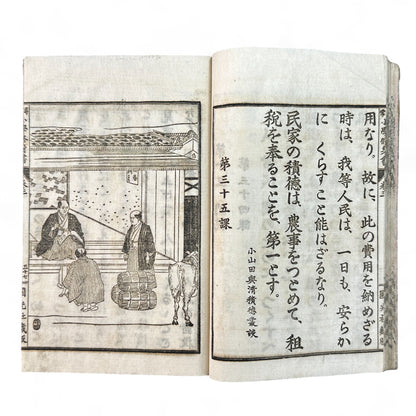 用なり。故に、此の費用を納めざる
時は、我等人民は、一日も、安らか
に、くらすこと能はざるなり。
民家の積徳は、農事をつとめて、租
税を奉ることを、第一とす。
小山田與清積徳叢談
第三十五課